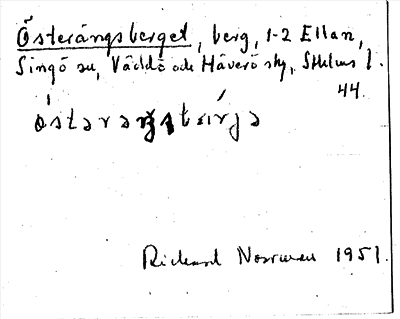 Österängsberget, berg, 1-2 Ellan,
Singö sn, Väddö och Häverö skg, Sthlms l.
44.
Richard Norrman 1951.